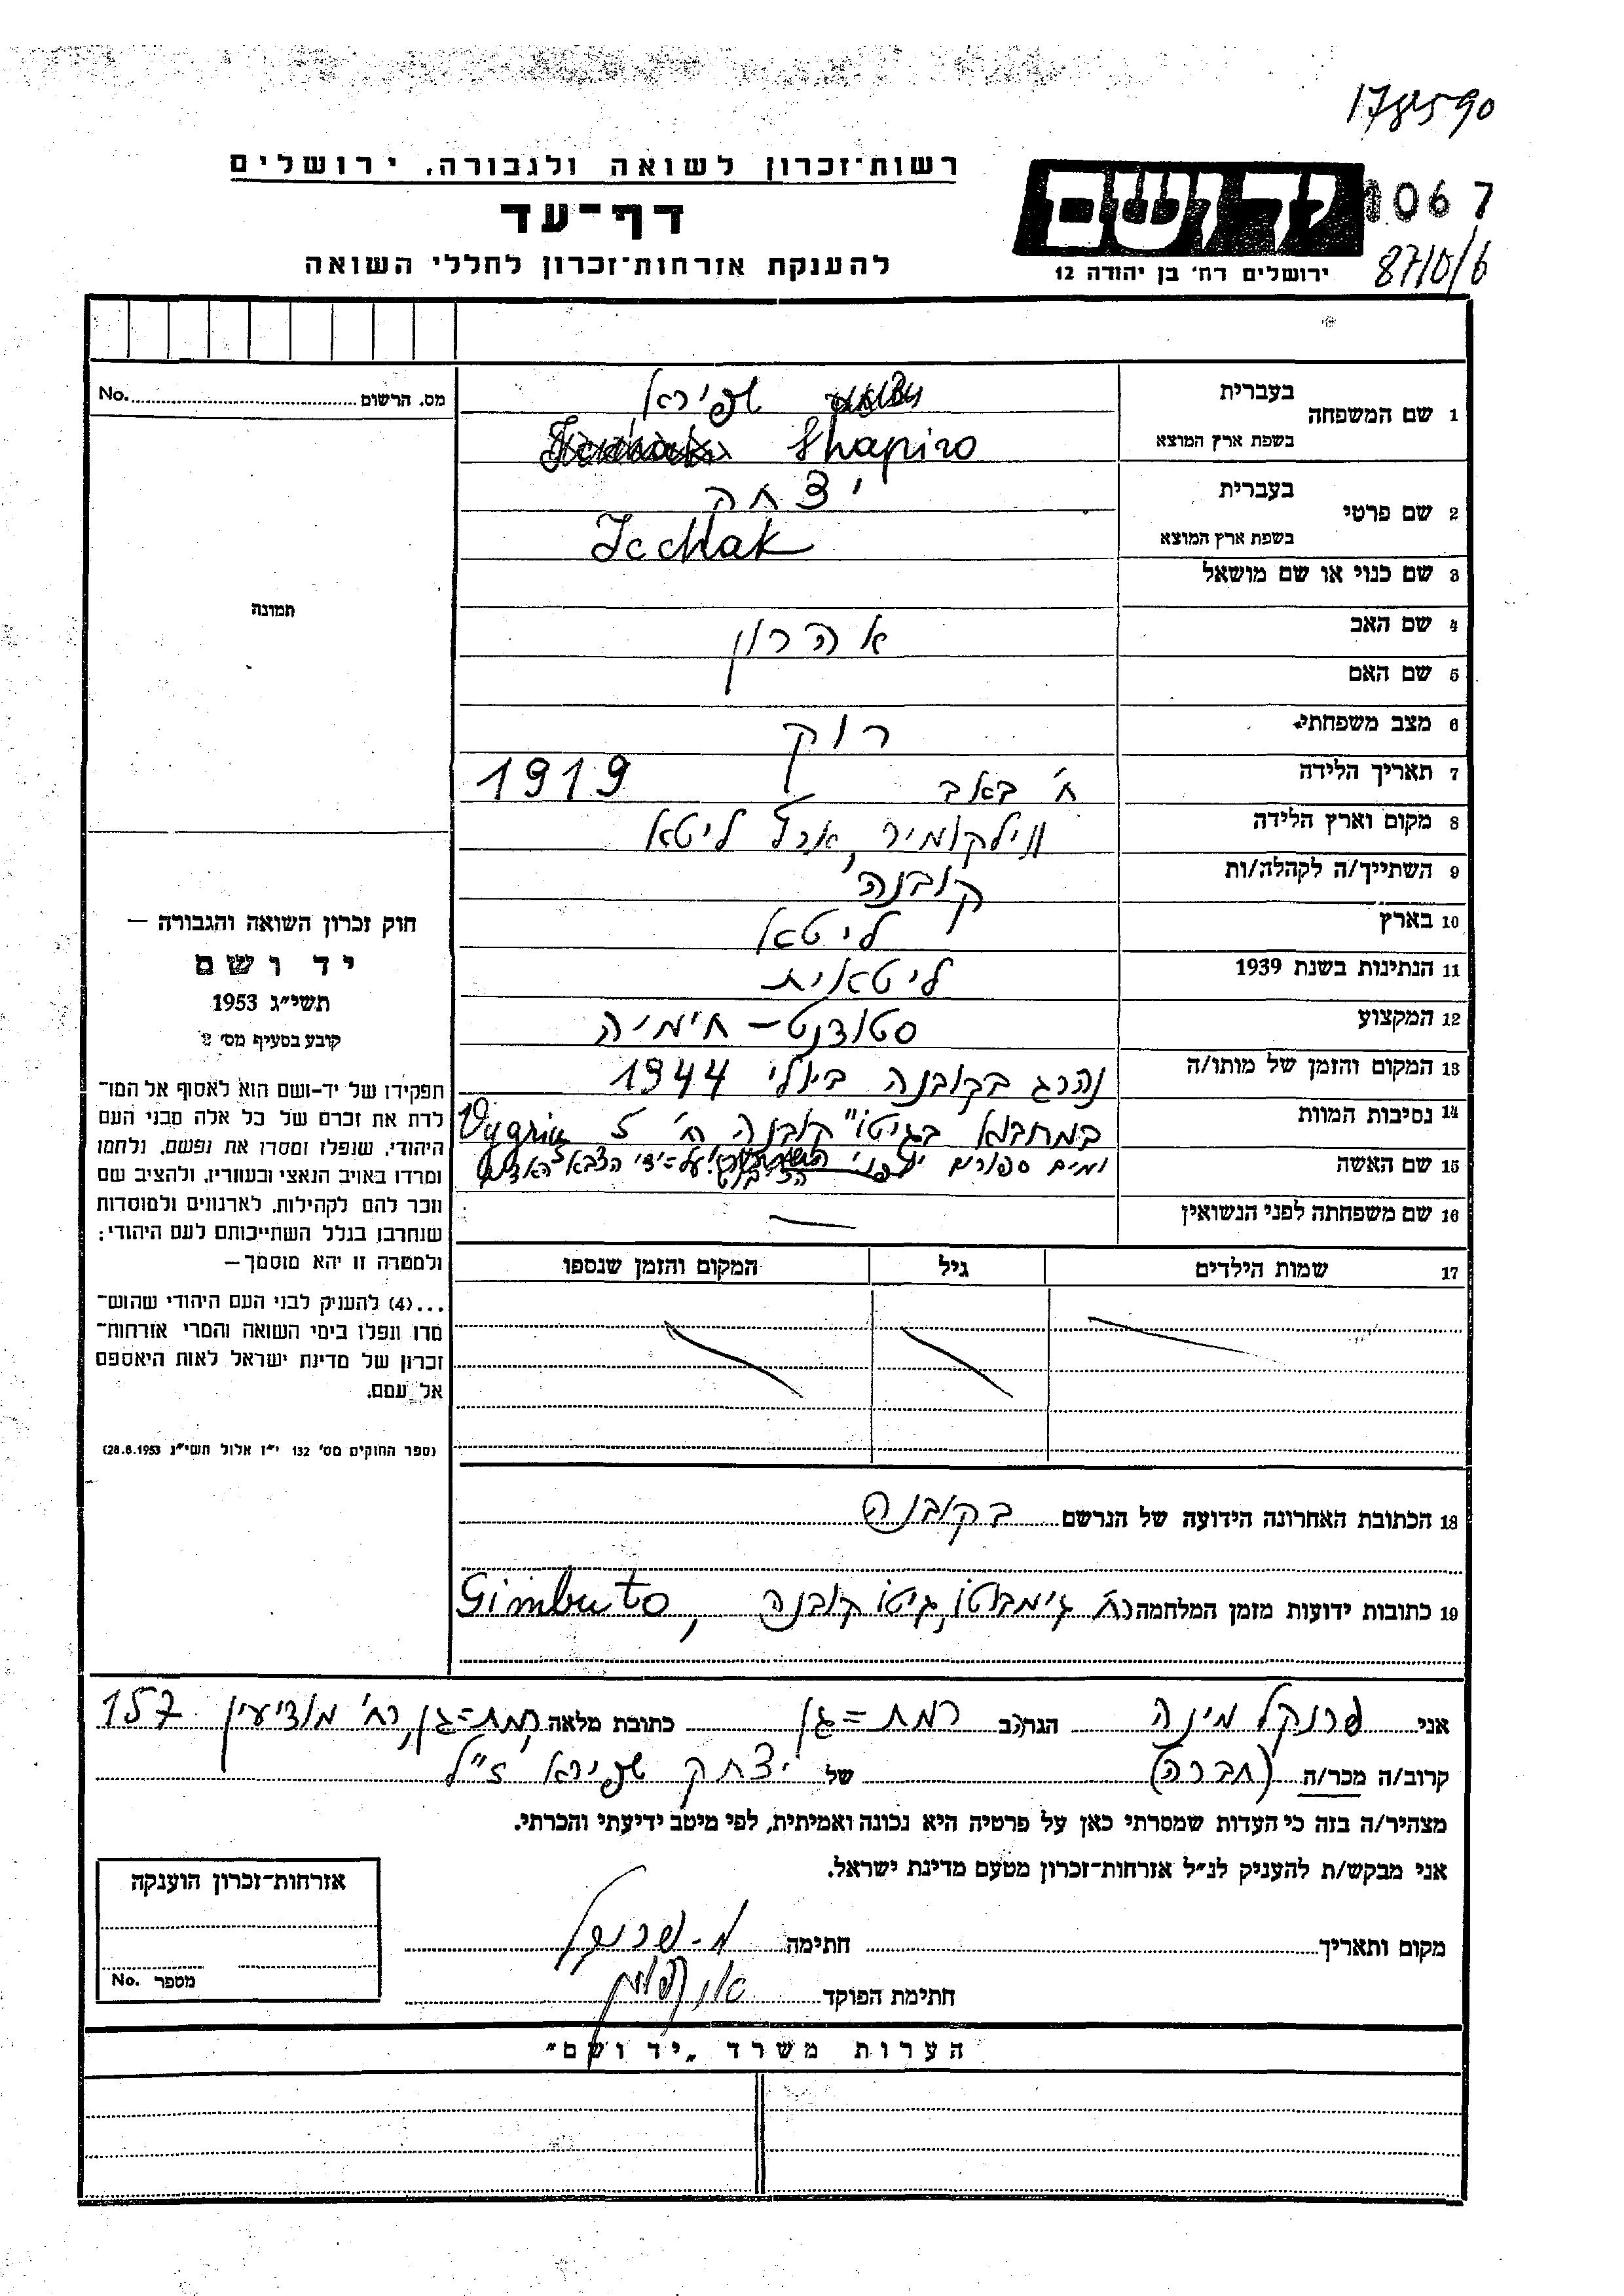 178590
רשות־זכרון לשואה ולגבורה, ירושלים
יד ושם
1067
דף־עד
87/0/6
להענקת אזרחות־זכרון לחללי השואה
ירושלים רח' בן יהודה 12
1 שם המשפחה בעברית שפירא
בשפת ארץ המוצא Shapiro
מס. הרשום No.
2 שם פרטי בעברית יצחק
בשפת ארץ המוצא Icchak
3 שם כנוי או שם מושאל
תמונה
4 שם האב אהרון
5 שם האם
6 מצב משפחתי רוק
7 תאריך הלידה ח' באב 1919
8 מקום וארץ הלידה ווילקומיר, ארץ ליטא
9 השתייך/ה לקהלה/ות קובנה
10 בארץ ליטא
11 הנתינות בשנת 1939 ליטאית
12 המקצוע סטודנט – חימיה
13 המקום והזמן של מותו/ה נהרג בקובנה ביולי 1944
14 נסיבות המוות במחבוא בגיטו קובנה רח' Vygriu 5
15 שם האשה ימים ספורים לפני על=ידי הצבא האדום
16 שם משפחתה לפני הנשואין —
17 שמות הילדים גיל המקום והזמן שנספו
חוק זכרון השואה והגבורה –
יד ושם
תשי"ג 1953
קובע בסעיף מס' 2
תפקידו של יד-ושם הוא לאסוף אל המו־
לדת את זכרם של כל אלה מבני העם
היהודי, שנפלו ומסרו את נפשם, נלחמו
ומרדו באויב הנאצי ובעוזריו, ולהציב שם
וזכר להם לקהילות, לארגונים ולמוסדות
שנחרבו בגלל השתייכותם לעם היהודי;
ולמטרה זו יהא מוסמך –
...(4) להעניק לבני העם היהודי שהוש־
מדו ונפלו בימי השואה והמרי אזרחות־
זכרון של מדינת ישראל לאות היאספם
אל עמם.
(ספר החוקים מס' 132 י"ז אלול תשי"ג 28.8.1953)
18 הכתובת האחרונה הידועה של הנרשם בקובנה
19 כתובות ידועות מזמן המלחמה רח' גימבוטו, גיטו קובנה, Gimbuto
אני פרנקל מינה הגר/ב רמת=גן כתובת מלאה רמת=גן, רח' מודיעין 157
קרוב/ה מכר/ה (חברה) של יצחק שפירא ז"ל
מצהיר/ה בזה כי העדות שמסרתי כאן על פרטיה היא נכונה ואמיתית, לפי מיטב ידיעתי והכרתי.
אני מבקש/ת להעניק לנ"ל אזרחות־זכרון מטעם מדינת ישראל.
אזרחות־זכרון הוענקה
מקום ותאריך חתימה מ. פרנקל
מספר No.
חתימת הפוקד
הערות משרד „יד ושם"